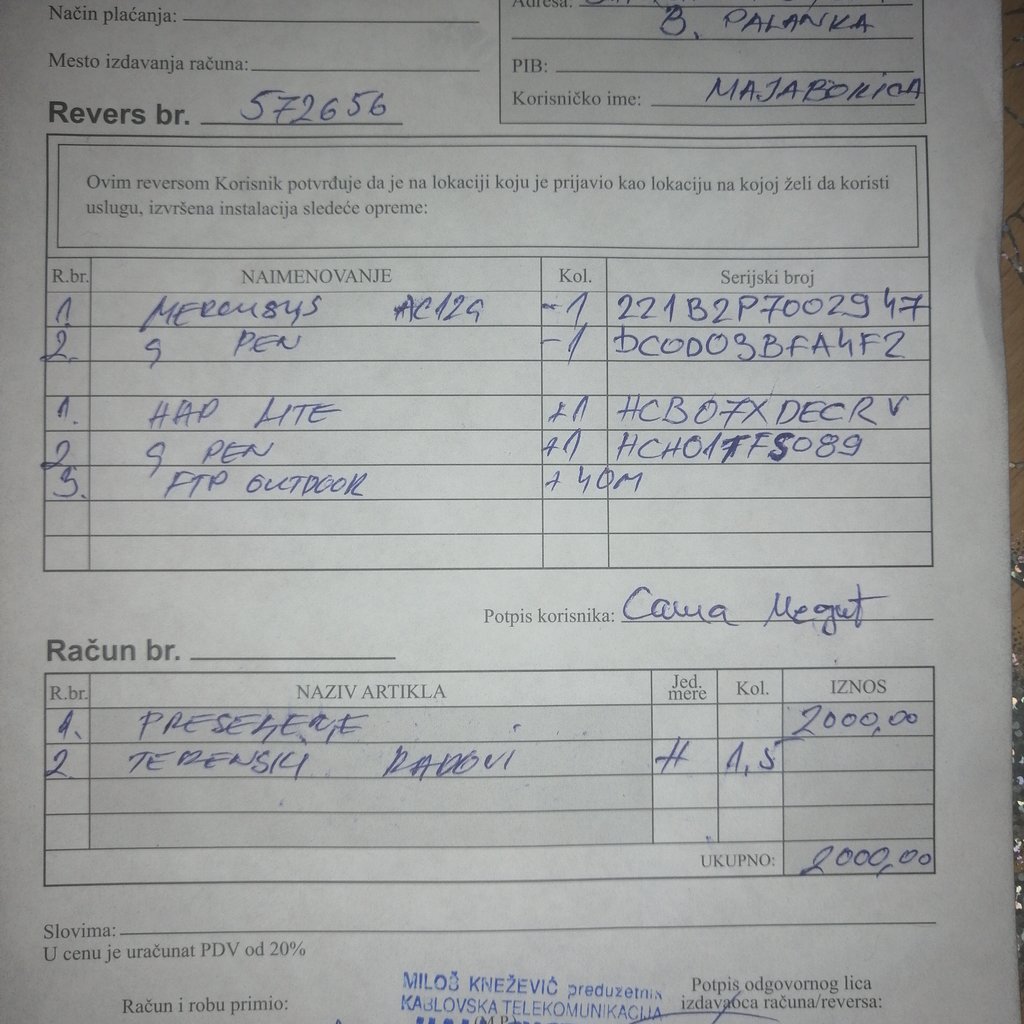 Način plaćanja:
Adresa:
B. PALANKA
Mesto izdavanja računa:
PIB:
Korisničko ime: MAJABORICA
Revers br. 572656
Ovim reversom Korisnik potvrđuje da je na lokaciji koju je prijavio kao lokaciju na kojoj želi da koristi
uslugu, izvršena instalacija sledeće opreme:
R.br. NAIMENOVANJE Kol. Serijski broj
1. MERCUSYS AC12G -1 221B2P7002947
2. G PEN -1 DC0D03BFA4F2
1. HAP LITE +1 HCB07XDECRV
2. G PEN +1 HCH01TFS089
3. FTP OUTDOOR + 40M
Potpis korisnika: Саша
Račun br.
R.br. NAZIV ARTIKLA Jed. mere Kol. IZNOS
1. PRESELENJE 2000,00
2 TERENSKI RADOVI H 1,5
UKUPNO: 2000,00
Slovima:
U cenu je uračunat PDV od 20%
MILOŠ KNEŽEVIĆ preduzetnik
KABLOVSKA TELEKOMUNIKACIJA
Potpis odgovornog lica
izdavaoca računa/reversa:
Račun i robu primio:
(M.P.)